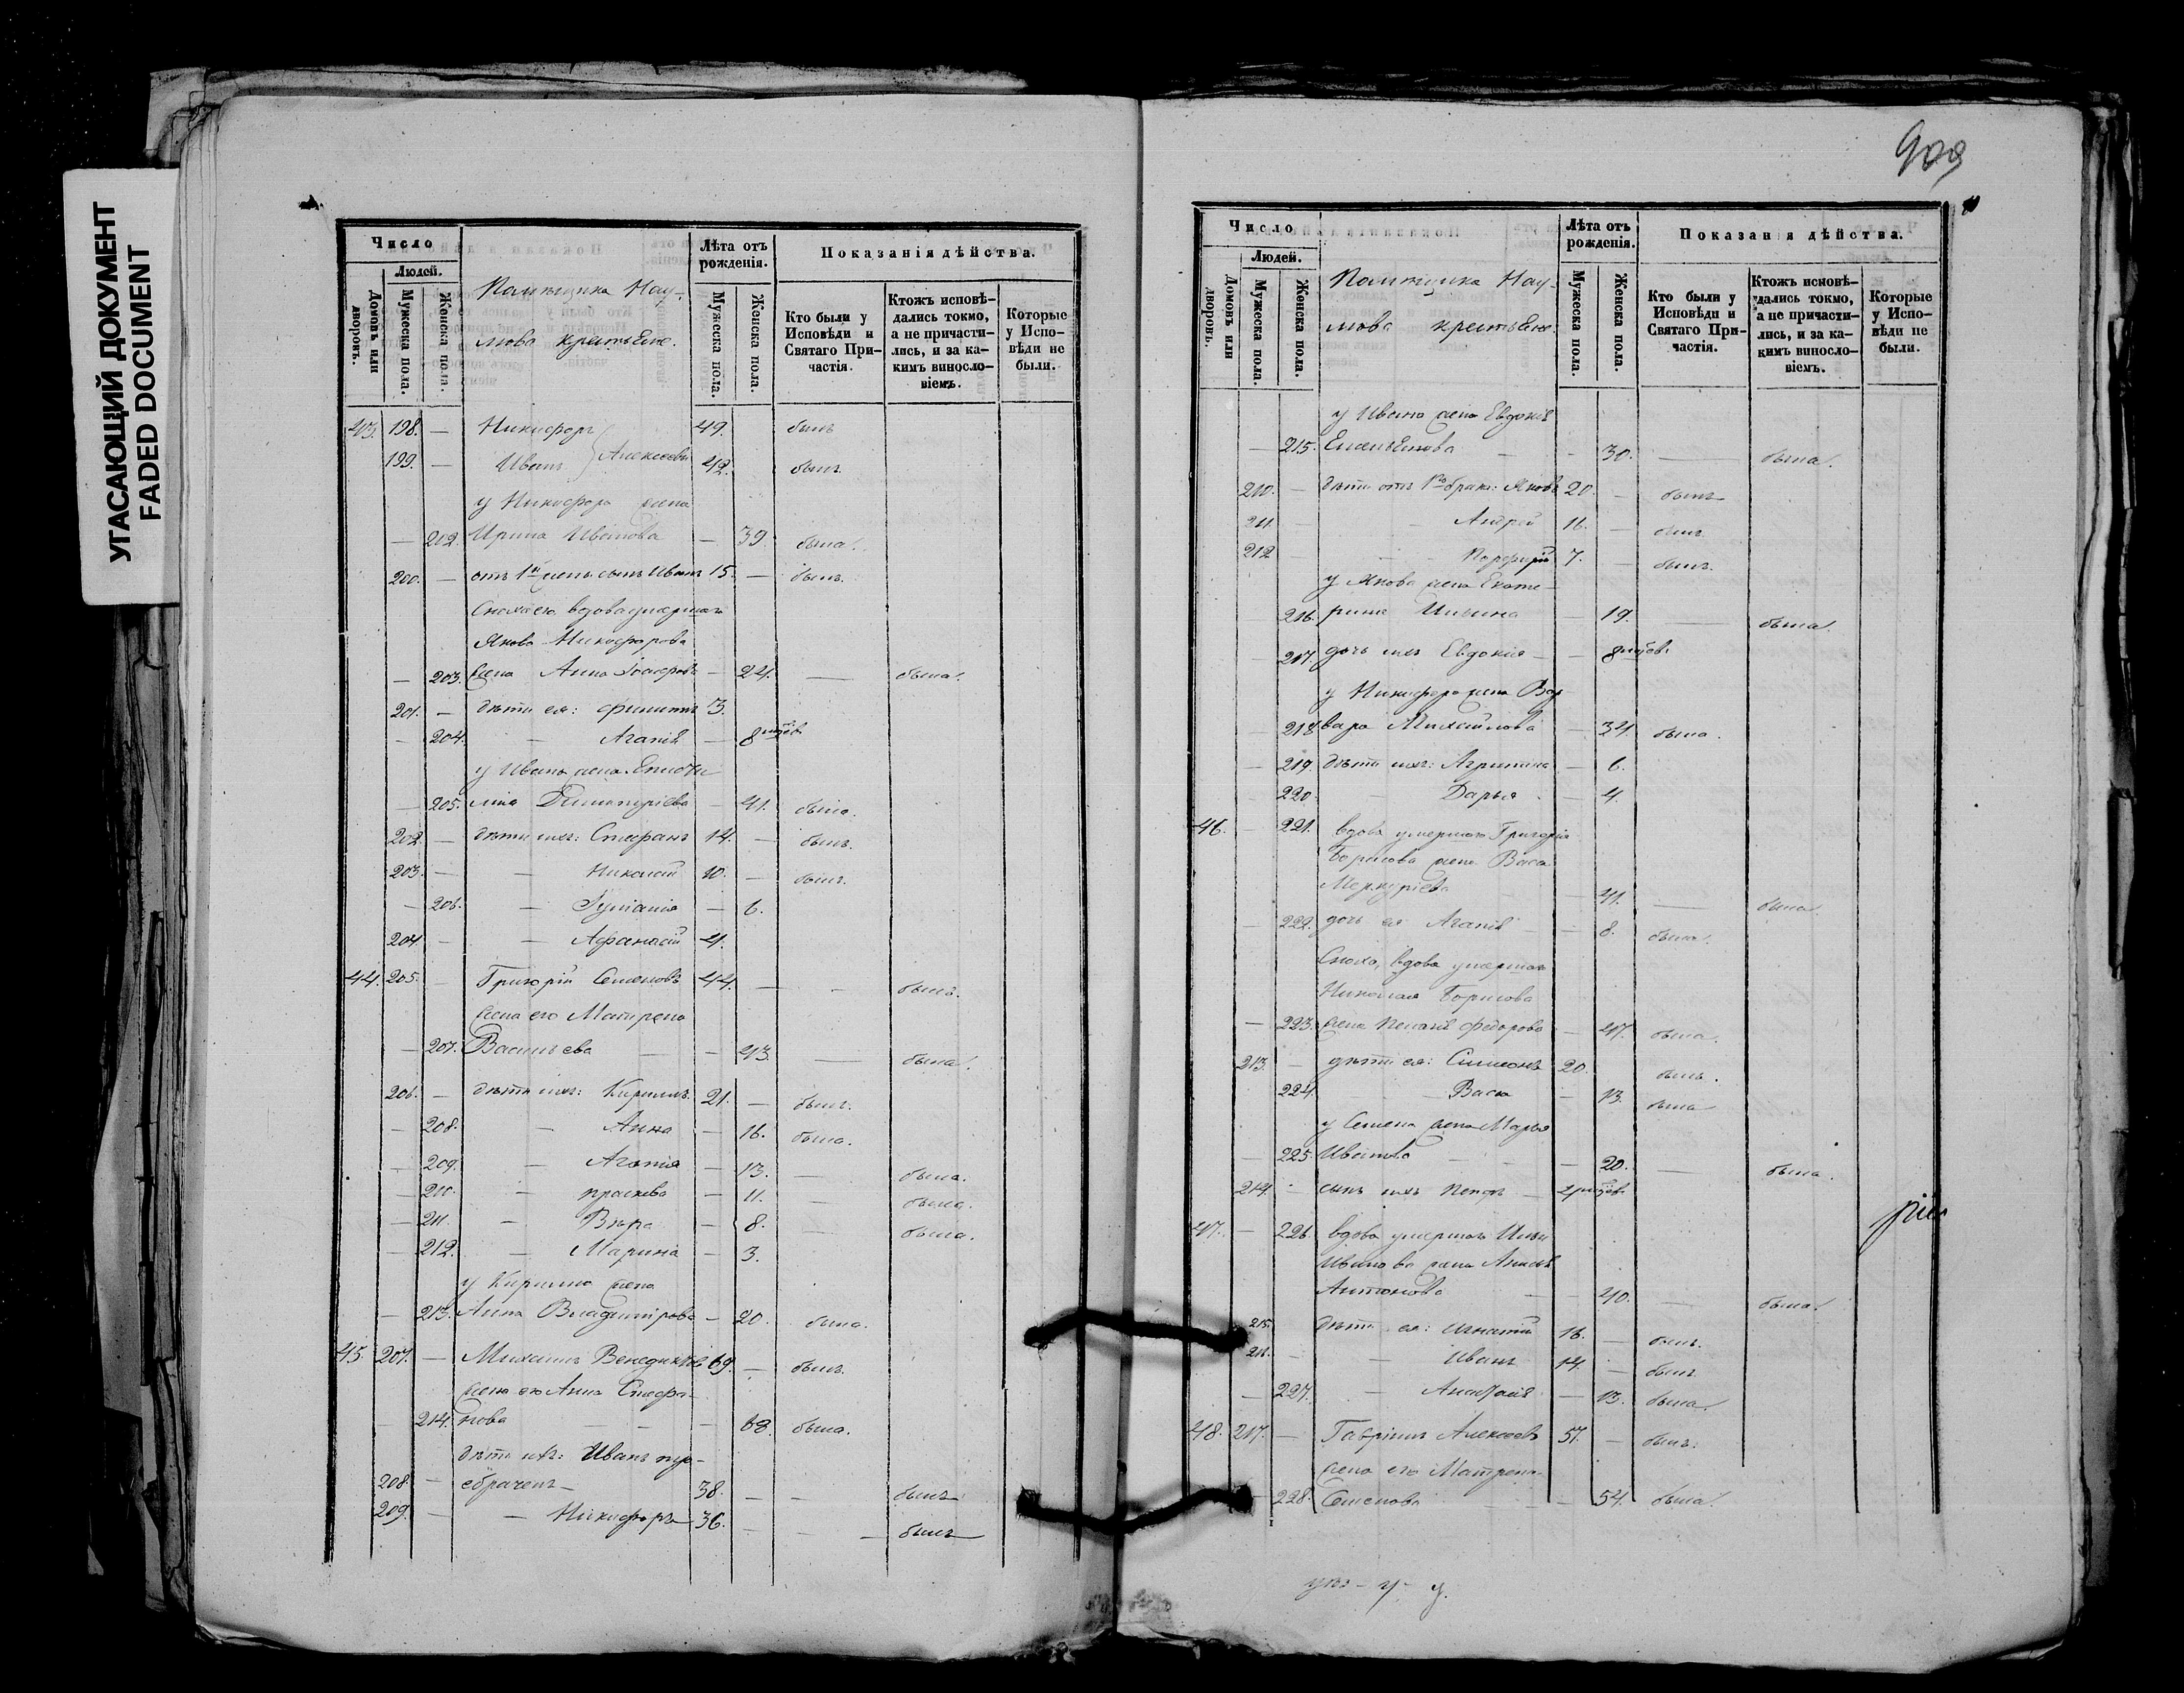 УГАСАЮЩИЙ ДОКУМЕНТ
FADED DOCUMENT
Число
Людей.
Домовъ или дворовъ.
Мужеска пола.
Женска пола.
Помѣщика Нау-
мова крестьяне.
Лѣта отъ рожденія.
Мужеска пола.
Женска пола.
Показанія дѣйства.
Кто были у Исповѣди и Святаго При-частія.
Ктожъ исповѣ-дались токмо, а не причасти-лись, и за ка-кимъ виносло-віемъ.
Которые у Испо-вѣди не были.
43. 198. — Никифоръ 49. былъ
199. — Иванъ } Алексеевы 42. былъ
у Никифора жена
— 202. Ирина Иванова — 39. была.
200. — отъ 1й жены сынъ Иванъ 15. — былъ.
Сноха его вдова умершаго
Якова Никифорова
— 203. жена Анна — 24. — была.
201. — дѣти ея: Филиппъ 3.
— 204. — Агапія — 8
у Ивана жена
— 205. Димитріева — 41. была.
202. — дѣти ихъ: Стефанъ 14. — былъ.
203. — — Николай 10. — былъ.
— 206. — — 6.
204. — — Афанасій 4.
44. 205. — Григорій Семеновъ 44. — — былъ.
жена его Матрена
— 207. Васильева — — 43 — была.
206. — дѣти ихъ: Кирилъ 21. — былъ.
— 208. — Анна — 16. была.
— 209. — Агапія — 13. — была.
— 210. — Праскева — 11. — была.
— 211. — Вѣра — 8. — была.
— 212. — Марина — 3.
у Кирилла жена
— 213. Анна Владимірова — 20. была.
45. 207. — Михаилъ 69. — былъ.
жена его Анна Стефа-
— 214. нова — 68. была.
дѣти ихъ: Иванъ
208. — 38. — — былъ
209. — — Никифоръ 36. — — былъ
909
Число
Людей.
Домовъ или дворовъ.
Мужеска пола.
Женска пола.
Помѣщика Нау-
мова крестьяне.
Лѣта отъ рожденія.
Мужеска пола.
Женска пола.
Показанія дѣйства.
Кто были у Исповѣди и Святаго При-частія.
Ктожъ исповѣ-дались токмо, а не причасти-лись, и за ка-кимъ виносло-віемъ.
Которые у Испо-вѣди не были.
у Ивана жена Евдокія
— 215. Емельянова — — 30. — была.
210. — дѣти отъ 1го брака: Яковъ 20. — былъ
211. — — Андрей 16. — былъ
212 — — Порфирій 7. — былъ.
у Якова жена Екате-
— 216. рина Ильина — 19. — была.
— 217. дочь ихъ Евдокія — — 8
у Никифора жена Вар-
— 218. вара Михайлова — 34. была.
— 219. дѣти ихъ: Агрипина — 6.
— 220. — Дарья — 4.
46. — 221. вдова умершаго Григорія
Борисова жена Васа
Меркуріева — 41. — была.
— 222. дочь ея Агапія — — 8. была.
Сноха, вдова умершаго
Николая Борисова
— 223. жена Федорова — 47. была.
213. — дѣти ея: Симеонъ 20. былъ.
224. — Васса — 13. была
у Семена жена Марья
— 225. Иванова — — 20. — была.
214. — сынъ ихъ Петръ —
47. — 226. вдова умершаго Ильи
Иванова жена
Антонова — — 40. — была.
215. дѣти ея: Игнатій 16. — былъ.
216. — — Иванъ 14. — былъ
— 227. — — 13. была.
48. 217. — Гавріилъ Алексеевъ 57. — былъ.
жена его Матрена
— 228. Семенова — — — 54. была.